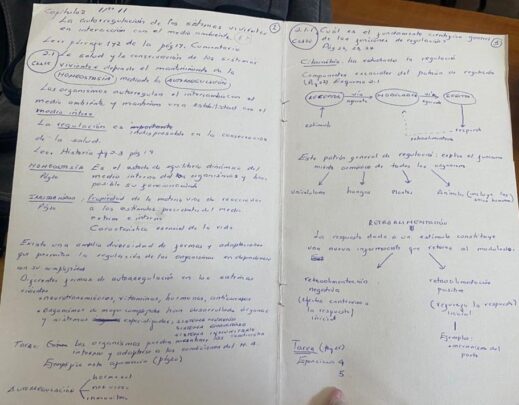 Capítulo 2
1
La autorregulación de los sistemas vivientes
en interacción con el medio ambiente
Leer párrafo 1 y 2 de la pág 17, Comentario
2.1 La salud y la conservación de los sistemas
Clase
vivientes depende del mantenimiento de la
HOMEOSTASIA mediante la AUTORREGULACIÓN
Los organismos autorregulan el intercambio con el
medio ambiente y mantienen una estabilidad con el
medio interno
La regulación es importante
indispensable en la conservación
de la salud.
Leer Historia
HOMEOSTASIA Es el estado de equilibrio dinámico del
medio interno de los organismos y hace
posible su
IRRITABILIDAD Propiedad de la materia viva de reaccionar
a los estímulos procedentes del medio
externo e interno
Característica esencial de la vida
Existe una amplia diversidad de formas y adaptaciones
que permiten la regulación de los organismos en dependencia
con su complejidad
Diferentes formas de autorregulación en los sistemas
vivientes
• neurotransmisores, vitaminas, hormonas, anticuerpos
• Organismos de mayor complejidad han desarrollado órganos
y sistemas especializados, SISTEMA NERVIOSO
SISTEMA ENDOCRINO
SISTEMA INMUNITARIO
Tarea: Los organismos pueden mantener las condiciones
internas y adaptarse a las condiciones del M.A.
Ejemplifica esta afirmación
AUTORREGULACIÓN
hormonal
nerviosa
inmunitaria
2.1.1 ¿Cuál es el fundamento científico general
Clase
de las funciones de regulación?
Cibernética: ha estudiado la regulación
Componentes esenciales del patrón de regulación
Esquema 2.1
RECEPTOR
vía
aferente
MODULADOR
vía
eferente
EFECTOR
estímulo
respuesta
retroalimentación
Este patrón general de regulación: explica el funciona
miento armónico de todos los organismos
unicelulares
hongos
plantas
Animales (incluye los
seres humanos)
RETROALIMENTACIÓN
La respuesta dada a un estímulo constituye
una nueva información que retorna al modulador.
retroalimentación
negativa
(efecto contrario a
la respuesta)
inicial
retroalimentación
positiva
(refuerza la respuesta
inicial)
Ejemplo:
• mecanismo del
parto
Tarea
Ejercicios 4
5